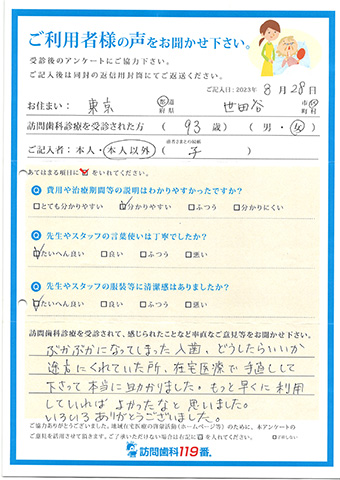 ご利用者様の声をお聞かせ下さい。
受診後のアンケートにご協力下さい。
ご記入後は同封の返信用封筒にてご返送ください。
ご記入日:2023年 8月28日
お住まい: 東京 都道府県 世田谷 市区町村
訪問歯科診療を受診された方 ( 93 歳) ( 男・女 )
ご記入者:本人・本人以外 ( 患者さまとの続柄 子 )
あてはまる項目に✓を入れてください。
Q 費用や治療期間等の説明はわかりやすかったですか?
□とても分かりやすい ☑分かりやすい □ふつう □分かりにくい
Q 先生やスタッフの言葉使いは丁寧でしたか?
☑たいへん良い □良い □ふつう □悪い
Q 先生やスタッフの服装等に清潔感はありましたか?
☑たいへん良い □良い □ふつう □悪い
訪問歯科診療を受診されて、感じられたことなど率直なご意見等をお聞かせ下さい。
ぶかぶかになってしまった入歯、どうしたらいいか
途方にくれていた所、在宅医療で手直しして
下さって本当に助かりました。もっと早くに利用
していれば よかったなと思いました。
いろいろありがとうございました。
ご協力ありがとうございました。地域在宅医療の啓蒙活動(ホームページ等)のために、本アンケートの
ご意見を活用させて頂きます。ご了承いただけない場合は右記に☑を入れてください。
訪問歯科119番®